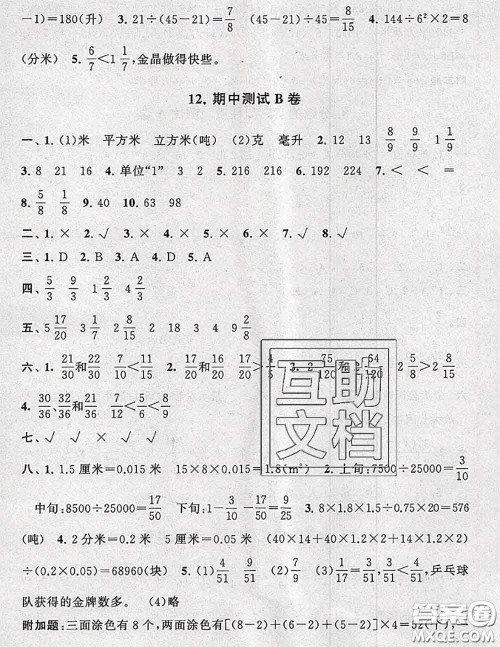 -1)=180(升)　3. 21÷(45-21)=7/8　(45-21)÷45=8/15　4. 144÷6²×2=8
(分米)　5. 6/7<1 1/7,金晶做得快些。
12. 期中测试 B 卷
一、1. (1)米　平方米　立方米(吨)　(2)克　毫升　2. 12　13　8/9　1 1/9
3. 8　21　16　4. 单位“1”　3　2　5. 216　6. 192　224　7. <　<　=
8. 5/8　1/8　9. 40　10. 63　98
二、1. ×　2. √　3. ×　4. ×　5. ×　6. ×　7. √　8. √
三、1. D　2. B　3. A　4. D　5. A
四、5/3　9/3　1 2/3　4 2/3
五、5 17/20　3 1/7　1 8/15　2 9/20　18　3　4　9 2/3
六、1. 21/30和22/30　7/10<11/15　2. 17/20和16/20　17/20>4/5　3. 2 75/120和2 64/120　2 5/8>2 8/15
4. 30/36和32/36和21/36　7/12<5/6<8/9
七、√　×　√　×　√
八、1. 1.5 厘米=0.015 米　15×8×0.015=1.8(m³)　2. 上旬:7500÷25000=3/10
中旬:8500÷25000=17/50　下旬:1-3/10-17/50=9/25　3. 8×1.5×0.75×20=576
(吨)　4. 2 分米=0.2 米　5 厘米=0.05 米　(40×14×2+20×14×2+40×20)
÷(0.2×0.05)=68960(块)　5. (1)4/51　9/51　(2)9/51　(3)1/3=17/51<,乒乓球
队获得的金牌数多。　(4)略
附加题:三面涂色有 8 个,两面涂色有[(8-2)+(6-2)+(5-2)]×4=52(个),一
互助
文档
答案圈
MXQE.COM